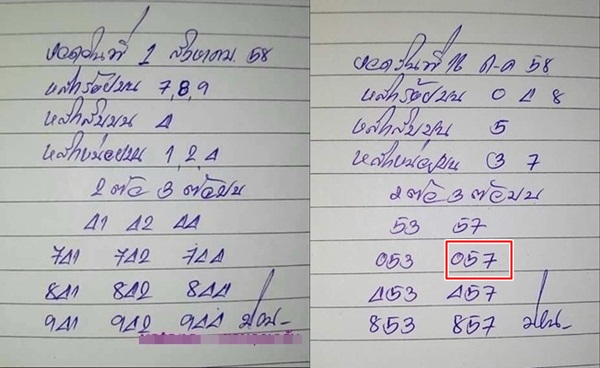 งวดวันที่ 1 สิงหาคม 58
หลักร้อยบน 7,8,9
หลักสิบบน 4
หลักหน่วยบน 1,2,4
2 ตัว 3 ตัวบน
41 42 44
741 742 744
841 842 844
941 942 944
งวดวันที่ 16 ต.ค 58
หลักร้อยบน 0 4 8
หลักสิบบน 5
หลักหน่วยบน 3 7
2 ตัว 3 ตัวบน
53 57
053 057
453 457
853 857